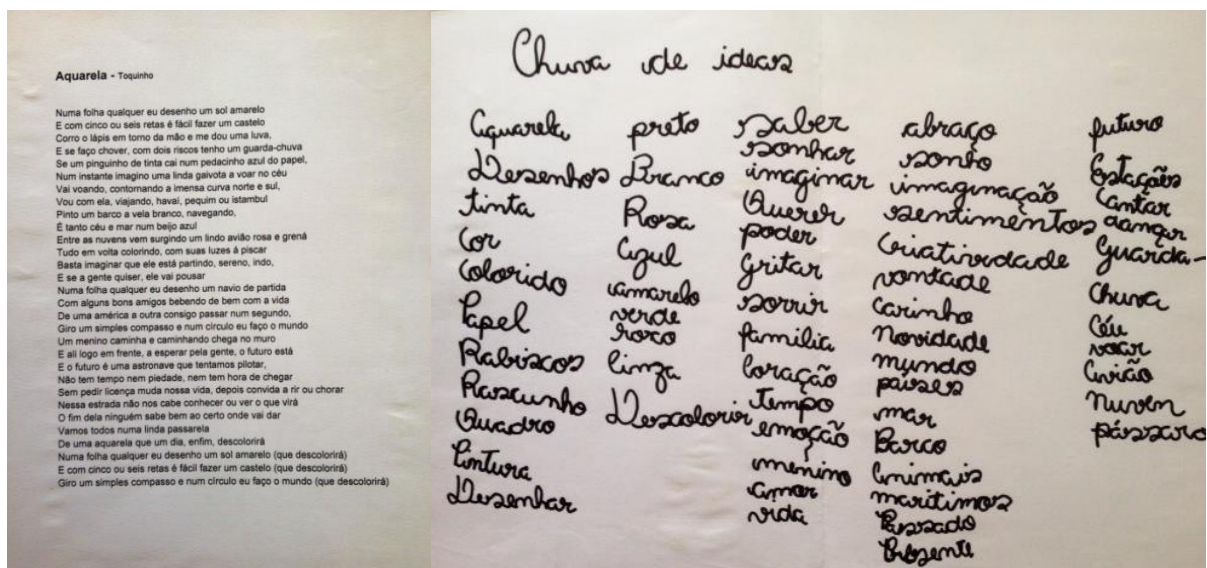 Aquarela - Toquinho
Numa folha qualquer eu desenho um sol amarelo
E com cinco ou seis retas é fácil fazer um castelo
Corro o lápis em torno da mão e me dou uma luva,
E se faço chover, com dois riscos tenho um guarda-chuva
Se um pinguinho de tinta cai num pedacinho azul do papel,
Num instante imagino uma linda gaivota a voar no céu
Vai voando, contornando a imensa curva norte e sul,
Vou com ela, viajando, havaí, pequim ou istambul
Pinto um barco a vela branco, navegando,
É tanto céu e mar num beijo azul
Entre as nuvens vem surgindo um lindo avião rosa e grená
Tudo em volta colorindo, com suas luzes à piscar
Basta imaginar que ele está partindo, sereno, indo,
E se a gente quiser, ele vai pousar
Numa folha qualquer eu desenho um navio de partida
Com alguns bons amigos bebendo de bem com a vida
De uma américa a outra consigo passar num segundo,
Giro um simples compasso e num círculo eu faço o mundo
Um menino caminha e caminhando chega no muro
E ali logo em frente, a esperar pela gente, o futuro está
E o futuro é uma astronave que tentamos pilotar,
Não tem tempo nem piedade, nem tem hora de chegar
Sem pedir licença muda nossa vida, depois convida a rir ou chorar
Nessa estrada não nos cabe conhecer ou ver o que virá
O fim dela ninguém sabe bem ao certo onde vai dar
Vamos todos numa linda passarela
De uma aquarela que um dia, enfim, descolorirá
Numa folha qualquer eu desenho um sol amarelo (que descolorirá)
E com cinco ou seis retas é fácil fazer um castelo (que descolorirá)
Giro um simples compasso e num círculo eu faço o mundo (que descolorirá)
Chuva de ideas
Aquarela
Desenhos
tinta
Cor
Colorido
Papel
Rabiscos
Rascunho
Quadro
Pintura
Desenhar
preto
Branco
Rosa
Azul
amarelo
verde
roxo
Cinza
Descolorir
saber
sonhar
imaginar
Querer
poder
Gritar
sorrir
família
Coração
Tempo
emoção
menino
Amor
vida
abraço
sonho
imaginação
sentimentos
Criatividade
vontade
Carinho
Novidade
mundo
países
mar
Barco
Animais
marítimos
Passado
Presente
futuro
Estações
Cantar
dançar
Guarda-
Chuva
Céu
voar
Avião
Nuvem
pássaro